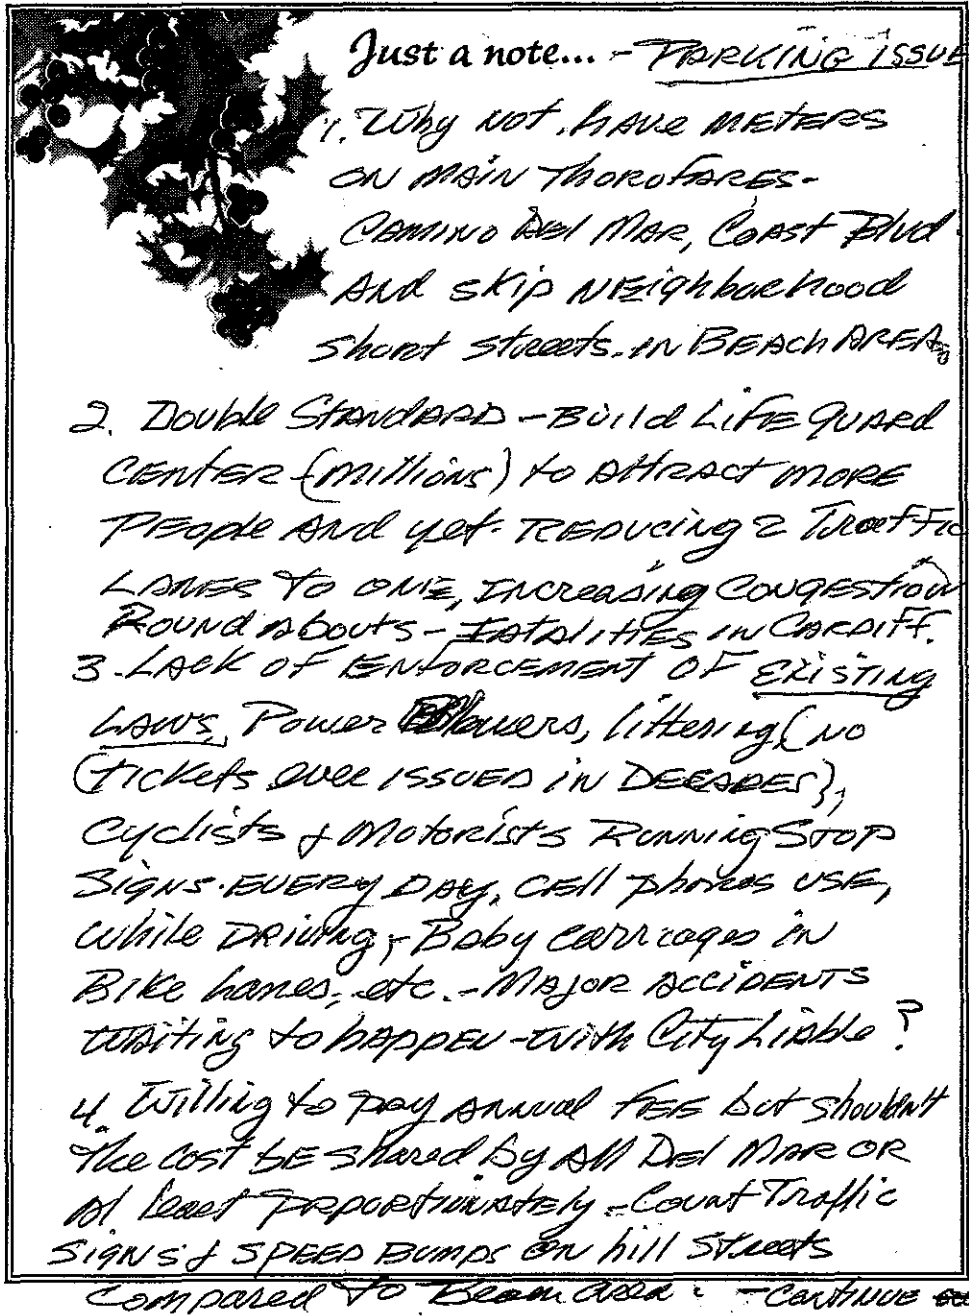 Just a note... - PARKING ISSUE
1. Why NOT, HAVE METERS
ON MAIN THOROFARES-
CAMINO Del MAR, COAST Blvd.
And skip NEighborhood
Short streets. IN BEACH AREA.
2. Double STANDARD - Build LIFEGUARD
CENTER (millions) to ATTRACT MORE
PEople And yet. REDUCING 2 Traffic
LANES TO ONE, INCREASING CONGESTION
Round Abouts - FATALITIES IN CARDIFF.
3. LACK OF ENFORCEMENT OF EXISTING
LAWS, Power Blowers, littering, (NO
(TICKETS ever ISSUED IN DECADES),
Cyclists & Motorists RUNNING STOP
SIGNS. EVERY DAY, CELL phones USE,
while DRIVING, - Baby carriages in
BIKE Lanes, etc. - MAJOR ACCIDENTS
WAITING to happen - with City LIABLE?
4 Willing to pay ANNUAL FEE but shouldn't
The cost bE shared by All Del MAR OR
At least PROPORTIONATELY - Count Traffic
SIGNS & SPEED BUMPS ON hill STREETS
Compared to Beach area. - CONTINUE